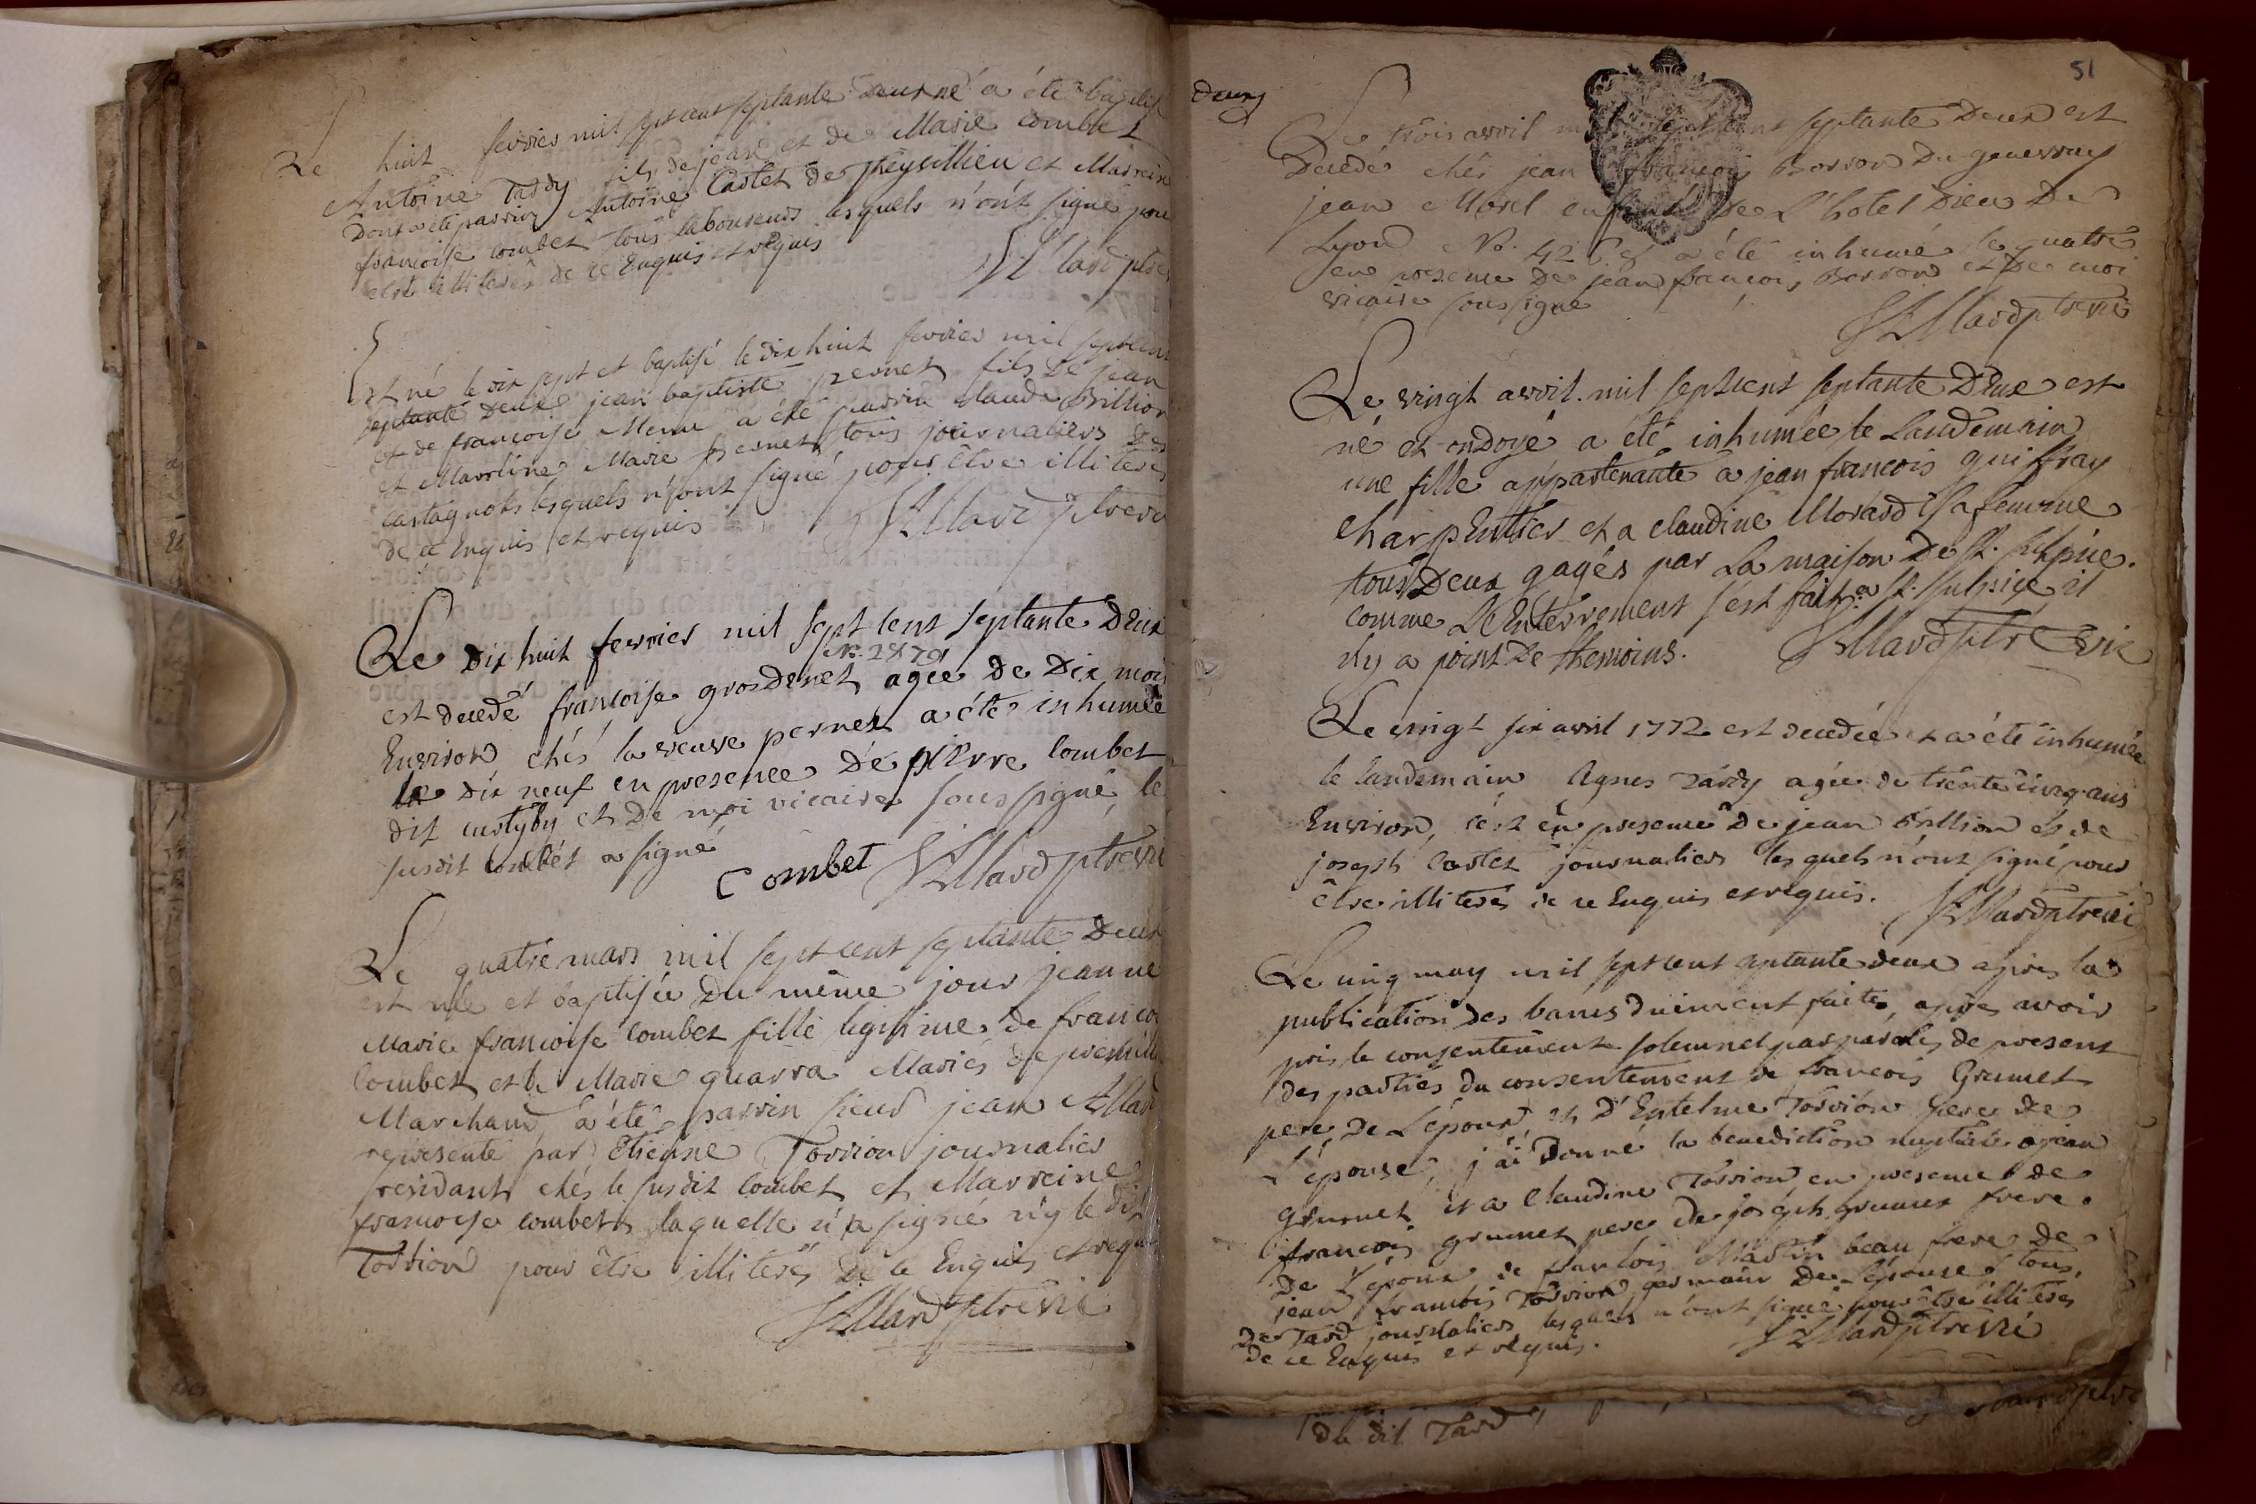 Le huit fevrier mil sept cent septante Deux né a été baptisé
Antoine Tardy fils de jean et de Marie combet
Dont a été parrin Antoine Castet de Peysillieu et Marreine
francoise combet tous laboureurs lesquels n'ont signé pour
etre illiterés de ce Enquis et requis
Allard ptre
Est né le dix sept et baptisé le dix huit fevrier mil sept cent
septante Deux jean baptiste pernet fils De jean
et de francoise Merme a été parrin claude Brillion
et Marreine Marie pernet tous journaliers des
castagnots lesquels n'ont signé pour être illiterés
de ce Enquis et requis Allard ptre vic
Le Dix huit fevrier mil sept cent septante Deux
N. 2879
est decedé francoise grosdenet agée de Dix mois
Environ chés la veuve pernet a été inhumée
le Dix neuf en presence De pierre combet
dit custyby et De moi vicaire soussigné, le
susdit combet a signé
Combet Allard ptre vic
Le quatre mars mil sept cent septante Deux
est née et baptisée Du même jour jeanne
Marie francoise combet fille legitime de francois
combet et de Marie quarra Mariés de
Marchand a été parrin sieur jean Allard
representé par Etienne Torrion journalier
residant chés le susdit combet et Marreine
francoise combet laquelle n'a signé n'y le dit
Torrion pour être illiterés De ce Enquis et requis
Allard ptre vic
deux
51
Le trois avril mil sept cent septante Deux est
Decedé chés jean francois Borron Du genevray
jean Morel enfant De L'hotel Dieu De
Lyon No. 42 a été inhumé le quatre
en presence De jean francois Borron et De moi
vicaire soussigné
Allard ptre vic
Le vingt avril mil sept cent septante Deux est
né et ondoyé a été inhumée le Landemain
une fille appartenante a jean francois quiffray
charpentier et a claudine Morard sa femme
tous Deux gagés par La maison De St. Sulpice.
comme L'Enterrement s'est fait a St. Sulpice il
n'y a point De themoins. Allard ptre vic
Le vingt six avril 1772 est decedée et a été inhumée
le landemain Agnes Tardy agée de trente cinq ans
Environ, c'est en presence De jean Brillion et de
joseph Castet journaliers lesquels n'ont signé pour
être illiterés de ce Enquis et requis. Allard ptre vic
Le cinq may mil sept cent septante deux apres la
publication des bancs duement faite, apres avoir
pris le consentement solemnel par paroles de present
des parties du consentement de francois Grumet
pere De L'époux, et D'Entelme Torrion pere de
l'épouse, j'ai Donné la benediction nuptiale a jean
grumet et a Claudine Torrion en presence de
francois grumet pere de joseph grumet frere.
De l'époux de francois Martin beau frere de
jean francois Torrion germain De l'épouse tous
De Tard journaliers lesquels n'ont signé pour être illiterés
de ce Enquis et requis. Allard ptre vic
du dit Tard